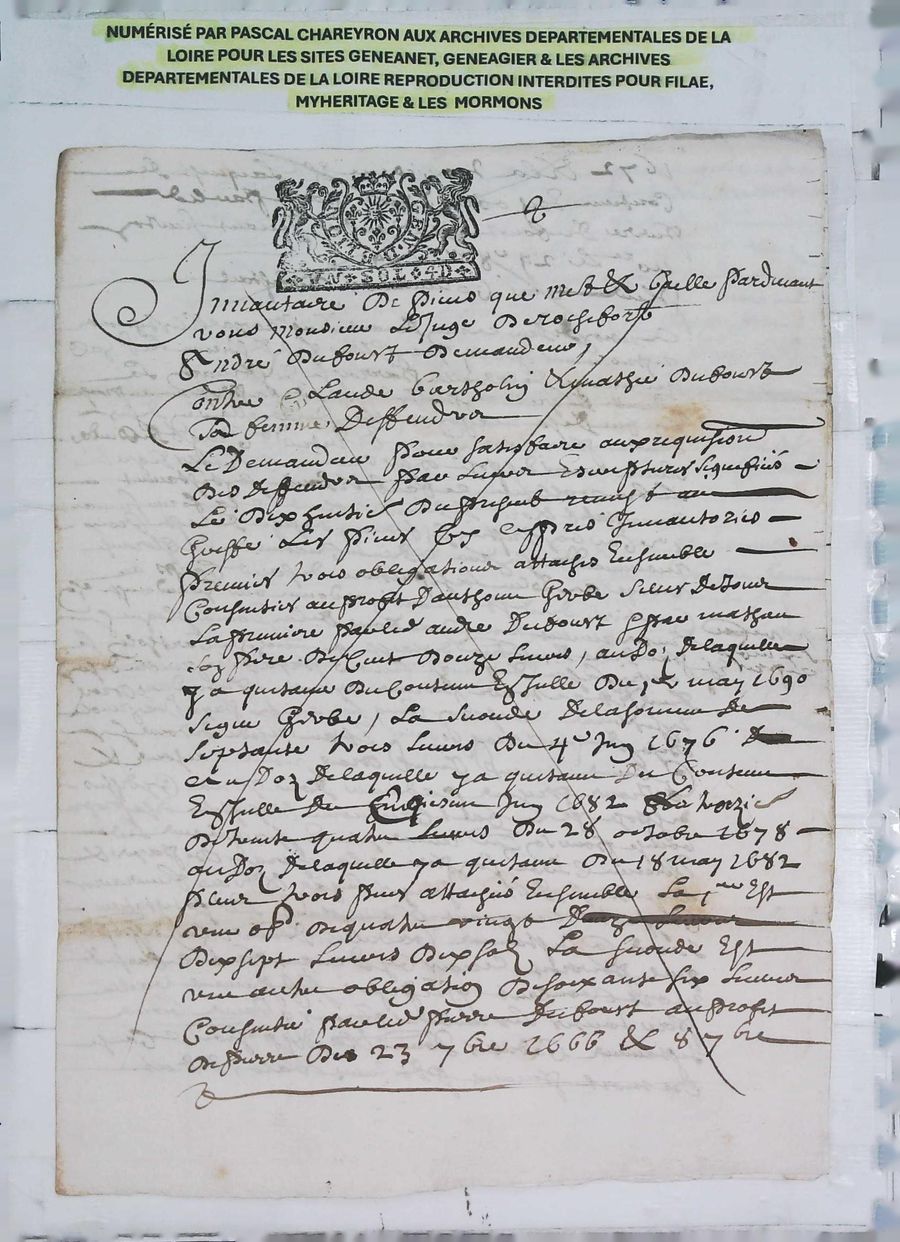 NUMÉRISÉ PAR PASCAL CHAREYRON AUX ARCHIVES DEPARTEMENTALES DE LA
LOIRE POUR LES SITES GENEANET, GENEAGIER & LES ARCHIVES
DEPARTEMENTALES DE LA LOIRE REPRODUCTION INTERDITES POUR FILAE,
MYHERITAGE & LES MORMONS
VN SOL 4D
Inuantaire de pieces que met & baille pardeuant
vous monsieur le Juge de rochefort
Andre dubourt demandeur
contre Claude bartholin & mathie dubourt
sa femme deffendeur
Le demandeur pour satisfaire
des deffendeur par leurs Escriptures signifiés
Les dix huitie du present remet au
Greffe les pieces cy apres Inuantories
premier trois obligations attachés Ensemble
au profit danthoine Gerbe sieur de
La premiere par led andre dubourt & par mathieu
son frere de Cent douze liures, au doz delaquelle
y a quitance du contenu En Icelle du may 1690
signe Gerbe, La seconde de la somme de
septante trois liures du 4e Juin 1676
au doz delaquelle y a quitance du Contenu
En Icelle du Juin 1682
de trente quatre liures du 28 octobre 1678
au doz delaquelle y a quitance du 18 may 1682
plus trois pieces attachés Ensemble La 1ere Est
vne de quatre vingt
dix sept liures dix solz La seconde Est
vne autre obligation de soixante six liures
par led pierre dubourt au profit
de pierre des 23 7bre 1666 & 8 7bre